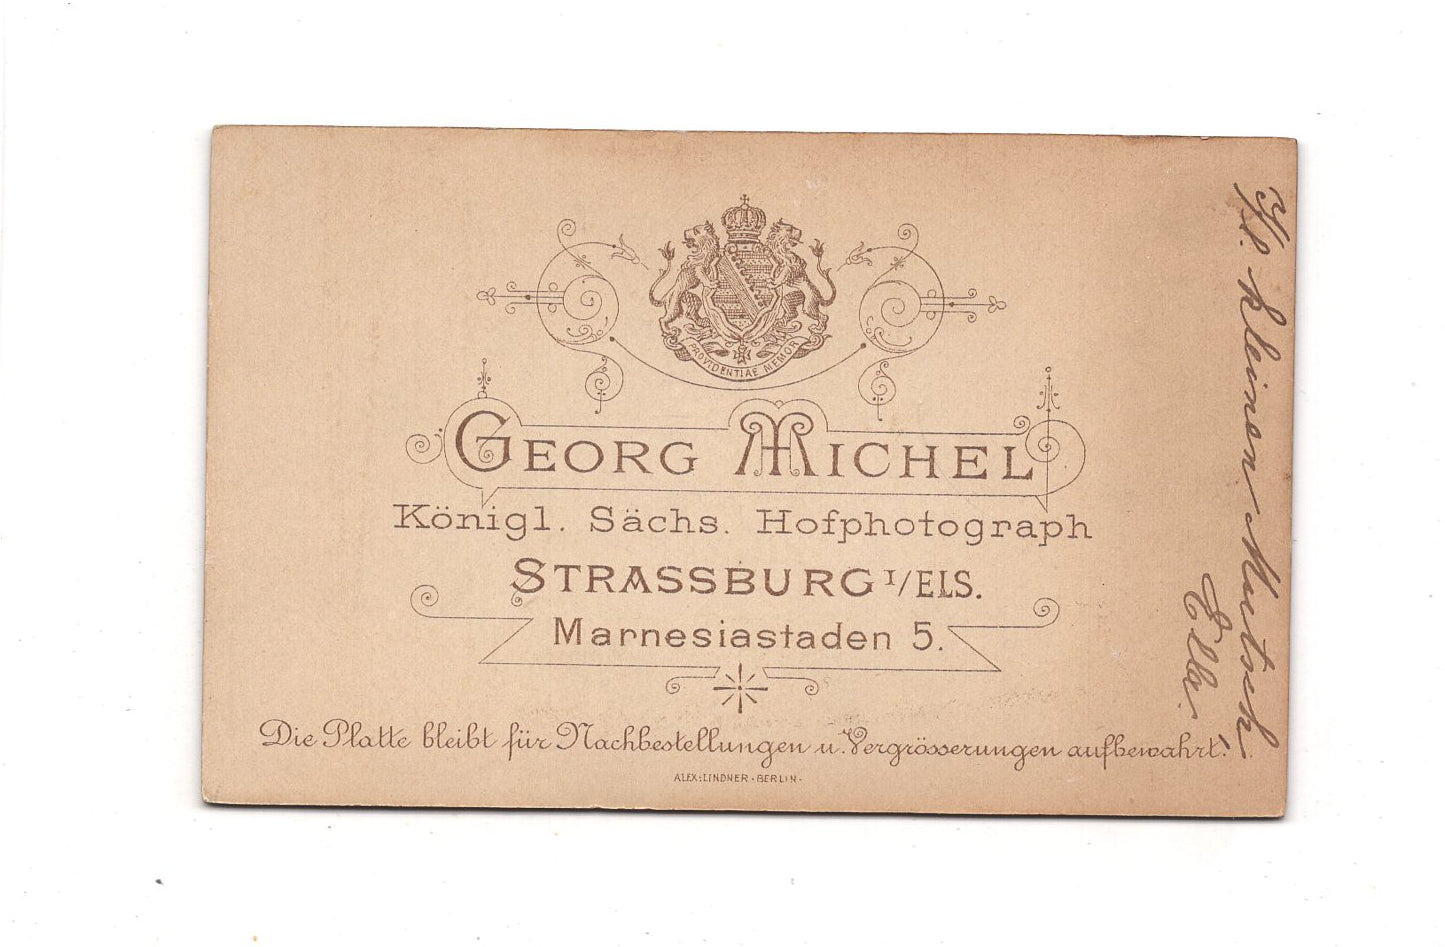 PROVIDENTIAE MEMOR
GEORG MICHEL
Königl. Sächs. Hofphotograph
STRASSBURG I/ELS.
Marnesiastaden 5.
Die Platte bleibt für Nachbestellungen u. Vergrösserungen aufbewahrt!
ALEX: LINDNER · BERLIN ·
Elbe.